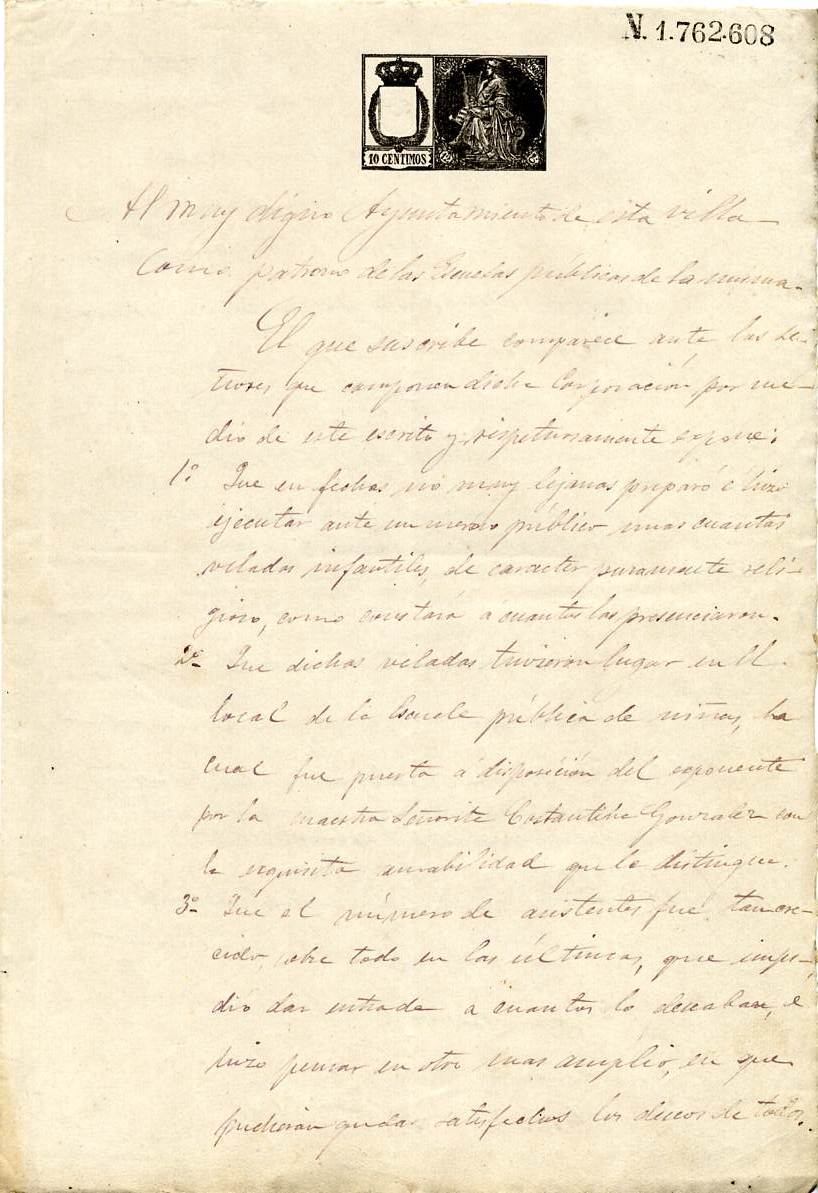 N. 1.762.608
10 CENTIMOS
Al muy digno Ayuntamiento de esta villa
como patrono de las Escuelas públicas de la misma.
El que suscribe comparece ante los se-
ñores que componen dicha Corporación por me-
dio de este escrito y respetuosamente expone:
1º Que en fechas no muy lejanas preparó é hizo
ejecutar ante numeroso público unas cuantas
veladas infantiles, de caracter puramente reli-
gioso, como constará a cuantos las presenciaron.
2º Que dichas veladas tuvieron lugar en el
local de la Escuela pública de niñas, la
cual fue puesta á disposición del exponente
por la maestra Señorita Costantina Gonzalez con
la exquisita amabilidad que le distingue.
3º Que el número de asistentes fué tan cre-
cido, sobre todo en las últimas, que impi-
dió dar entrada a cuantos lo deseaban, e
hizo pensar en otro mas amplio, en que
pudieran quedar satisfechos los deseos de todos.